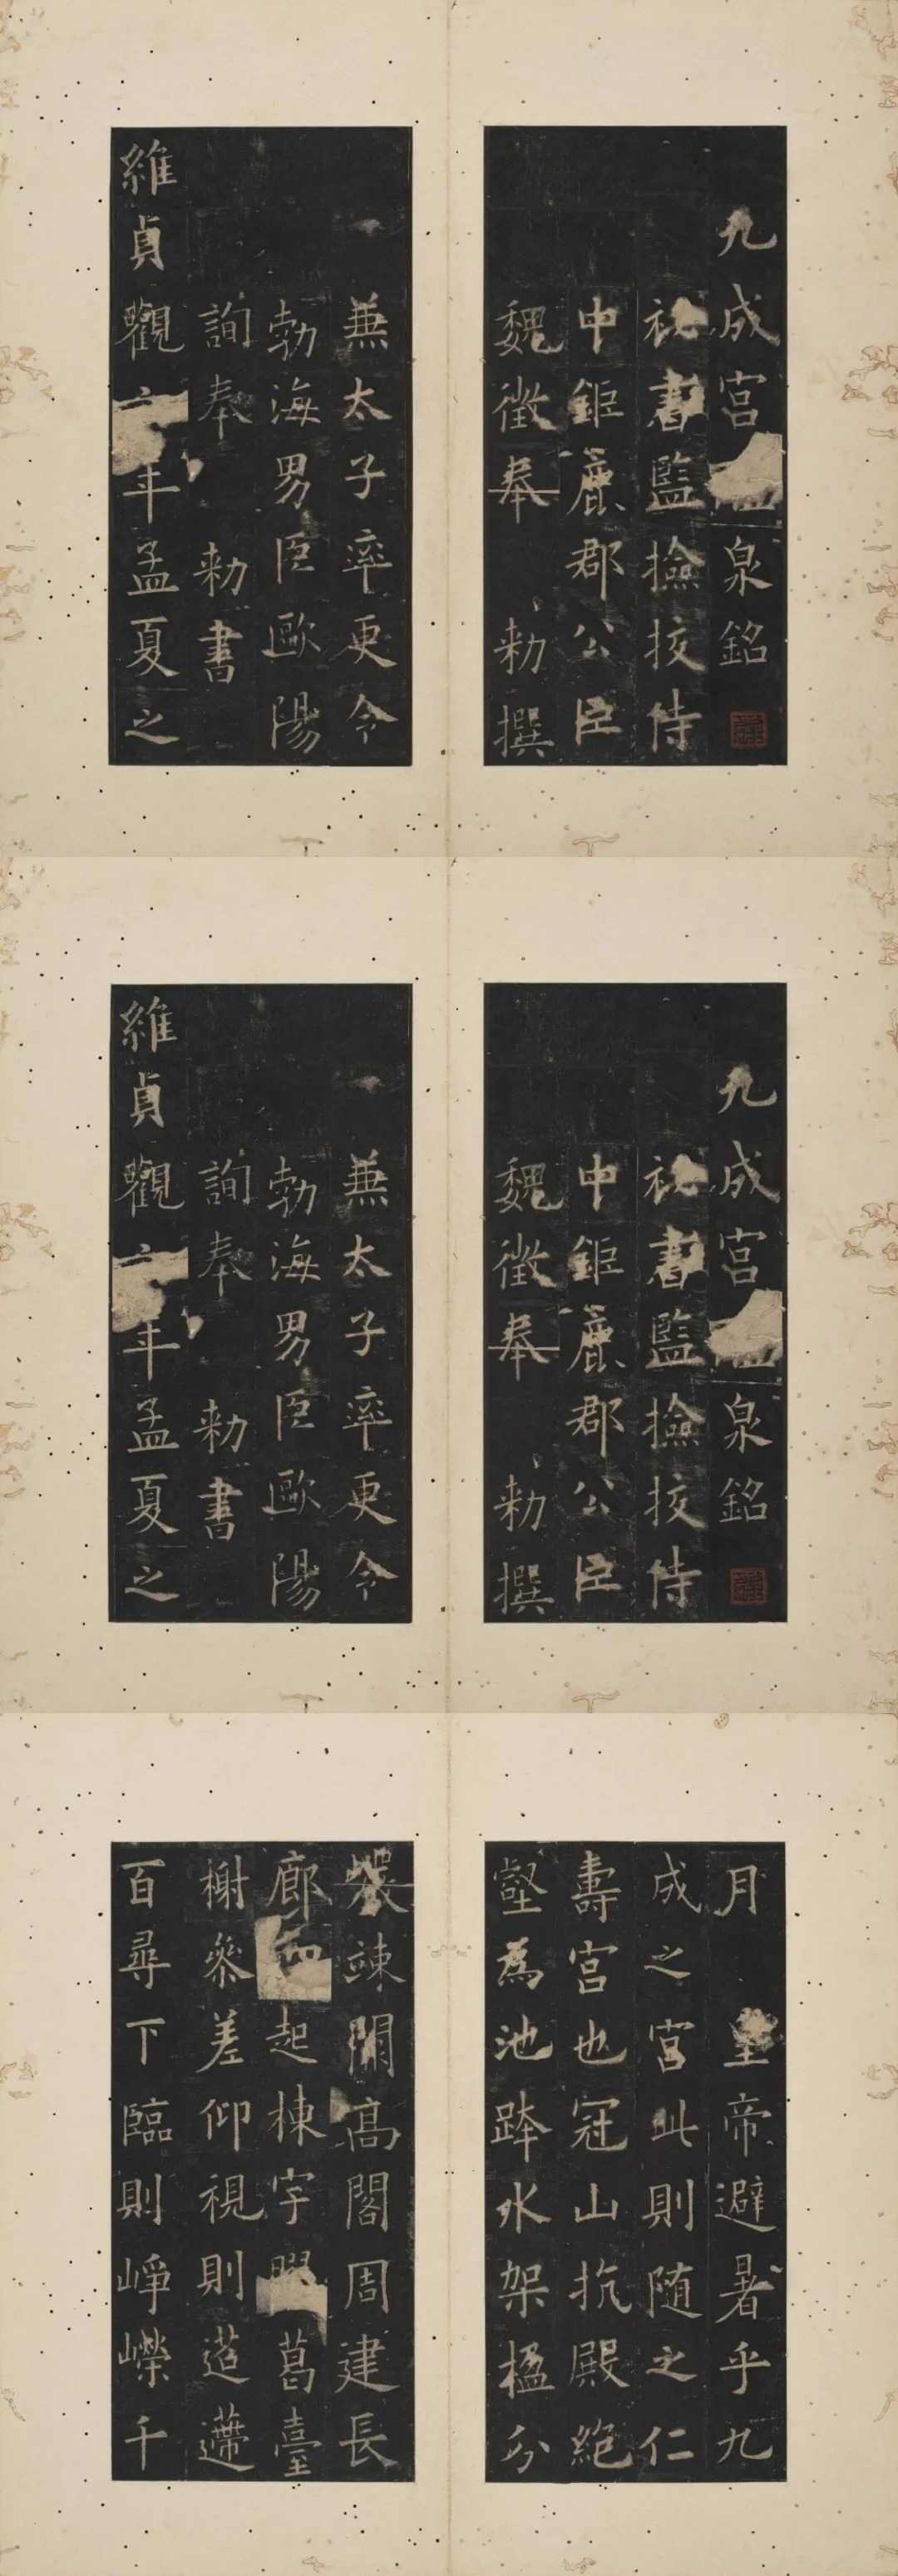 九成宮泉銘
祕書監撿挍侍
中鉅鹿郡公臣
魏徵奉 勑撰
兼太子率更令
勃海男臣歐陽
詢奉 勑書
維貞觀六年孟夏之
九成宮泉銘
祕書監撿挍侍
中鉅鹿郡公臣
魏徵奉 勑撰
兼太子率更令
勃海男臣歐陽
詢奉 勑書
維貞觀六年孟夏之
月 皇帝避暑乎九
成之宮此則随之仁
壽宮也冠山抗殿絕
壑爲池跨水架楹分
巖竦闕高閣周建長
廊四起棟宇膠葛臺
榭參差仰視則迢遰
百尋下臨則崢嶸千